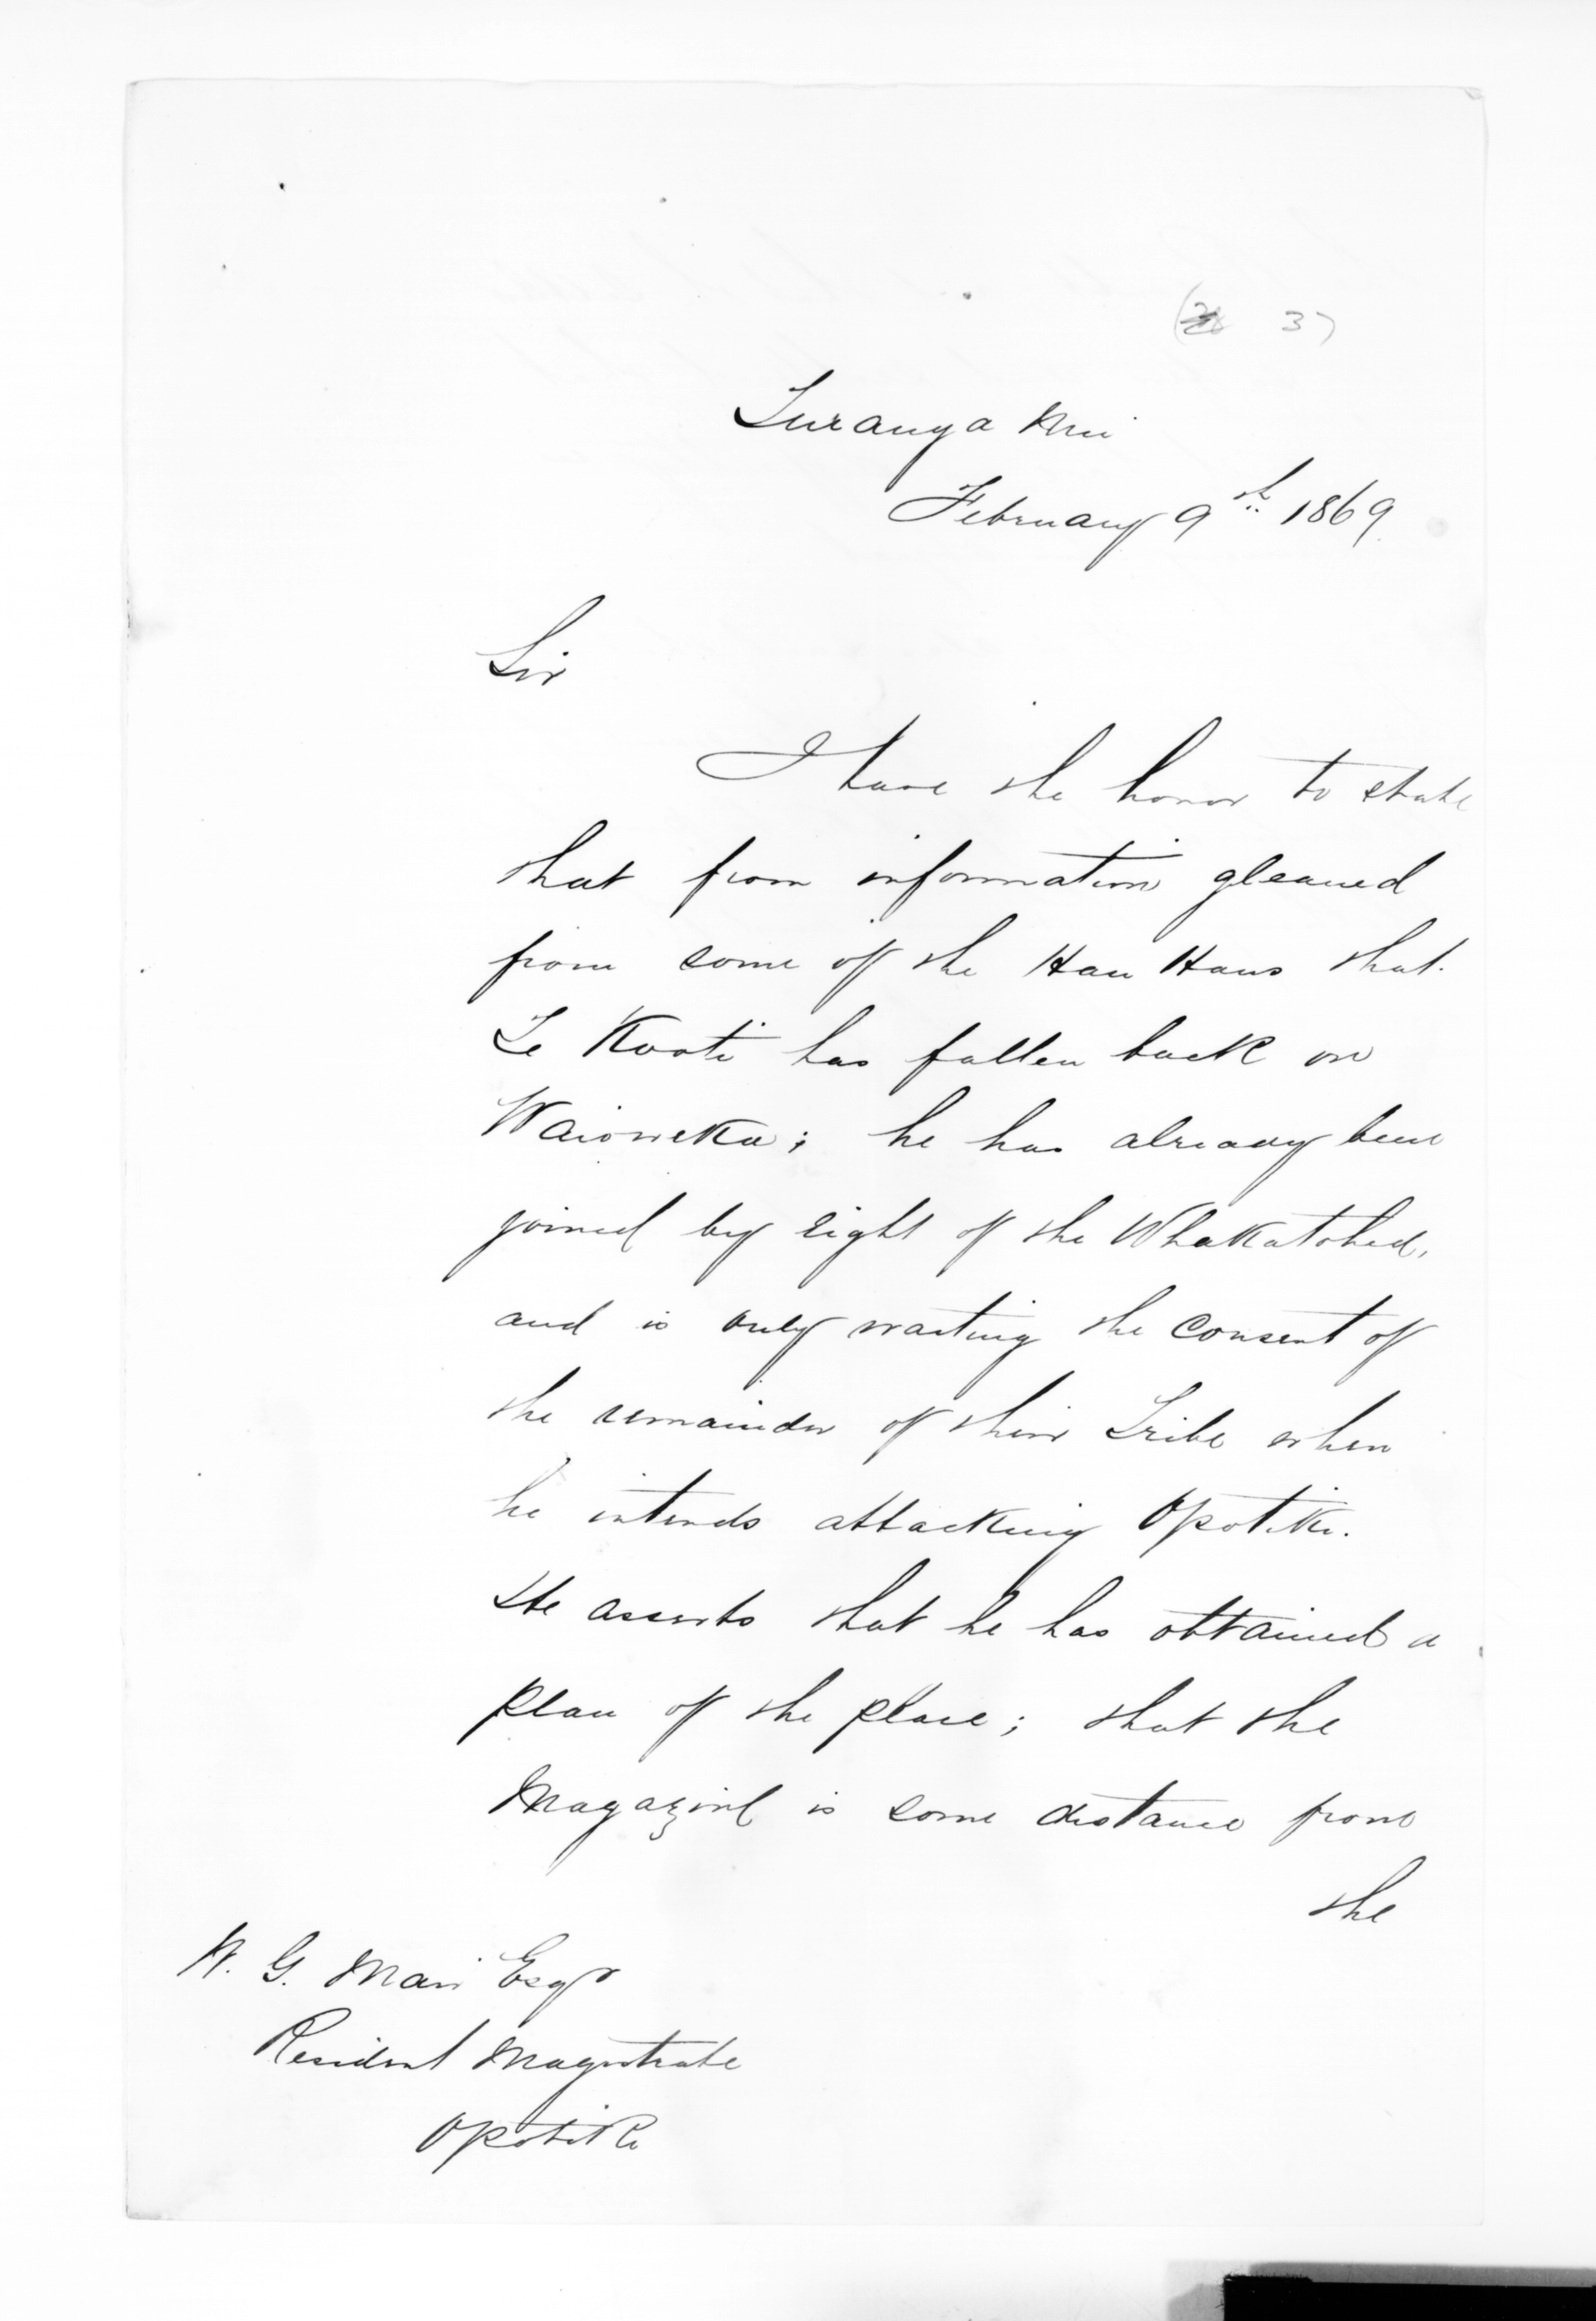 37
Turanga Nui
February 9th 1869.
Sir
I have the honor to state
that from information gleaned
from some of the Hau Haus that
Te Kooti has fallen back on
Waioweka; he has already been
joined by eight of the Whakatohea,
and is only waiting the consent of
the remainder of their Tribe when
he intends attacking Opotiki.
He asserts that he has obtained a
plan of the place; that the
Magazine is some distance from
the
W. G. Mair Esqr
Resident Magistrate
Opotiki